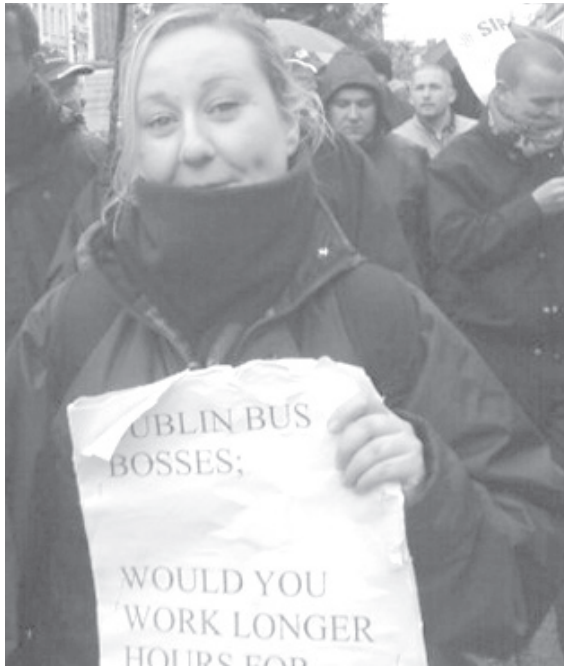 SIP
DUBLIN BUS
BOSSES;
WOULD YOU
WORK LONGER
HOURS FOR